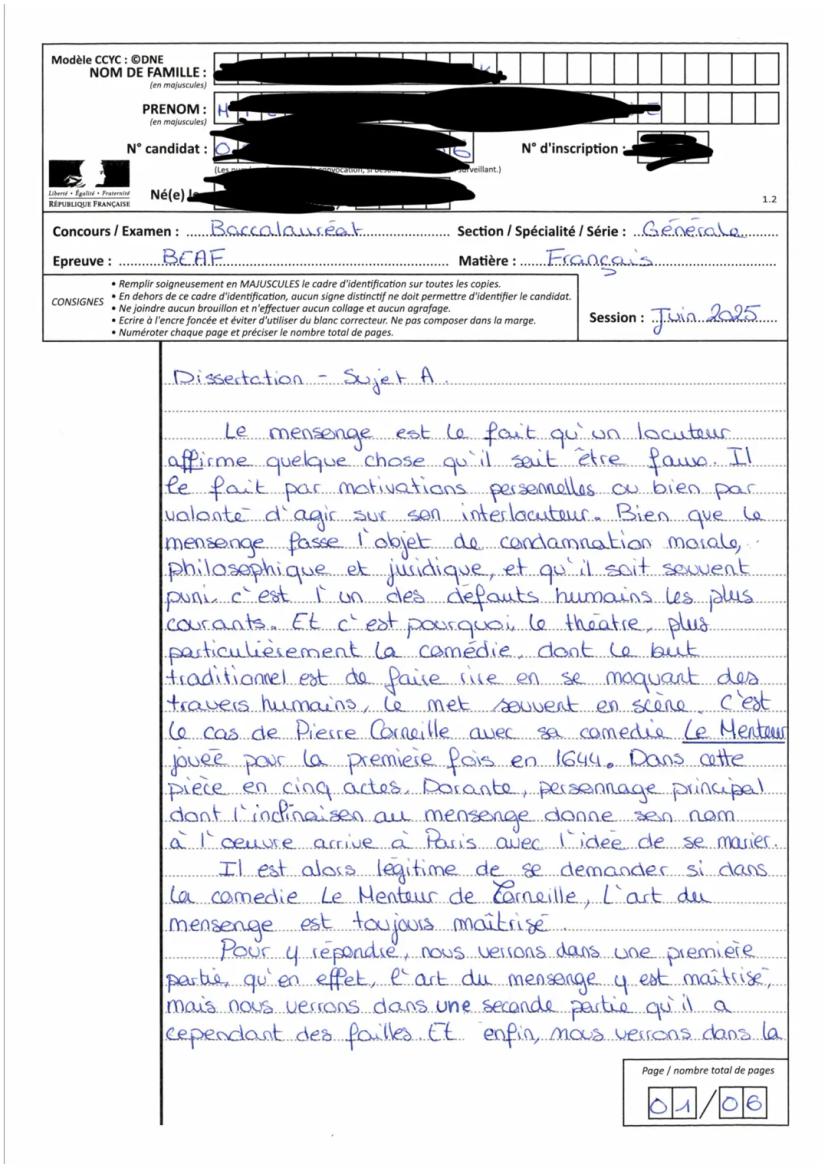 Modèle CCYC : ©DNE
NOM DE FAMILLE :
(en majuscules)
PRENOM :
(en majuscules)
N° candidat :
N° d'inscription :
(Les
surveillant.)
Né(e)
Liberté • Égalité • Fraternité
RÉPUBLIQUE FRANÇAISE
1.2
Concours / Examen : Baccalauréat Section / Spécialité / Série : Générale
Epreuve : BEAF Matière : Français
CONSIGNES
• Remplir soigneusement en MAJUSCULES le cadre d'identification sur toutes les copies.
• En dehors de ce cadre d'identification, aucun signe distinctif ne doit permettre d'identifier le candidat.
• Ne joindre aucun brouillon et n'effectuer aucun collage et aucun agrafage.
• Ecrire à l'encre foncée et éviter d'utiliser du blanc correcteur. Ne pas composer dans la marge.
• Numéroter chaque page et préciser le nombre total de pages.
Session : Juin 2025
Dissertation - Sujet A.
Le mensonge est le fait qu'un locuteur
affirme quelque chose qu'il sait être faux. Il
le fait par motivations personnelles ou bien par
volonté d'agir sur son interlocuteur. Bien que le
mensonge fasse l'objet de condamnation morale,
philosophique et juridique, et qu'il soit souvent
puni, c'est l'un des défauts humains les plus
courants. Et c'est pourquoi, le théâtre, plus
particulièrement la comédie, dont le but
traditionnel est de faire rire en se moquant des
travers humains, le met souvent en scène. C'est
le cas de Pierre Corneille avec sa comedie Le Menteur
jouée pour la première fois en 1644. Dans cette
pièce en cinq actes, Dorante, personnage principal
dont l'inclinaison au mensonge donne son nom
à l'œuvre arrive à Paris avec l'idée de se marier.
Il est alors légitime de se demander si dans
la comedie Le Menteur de Corneille, l'art du
mensonge est toujours maîtrisé.
Pour y répondre, nous verrons dans une première
partie, qu'en effet, l'art du mensonge y est maîtrisé,
mais nous verrons dans une seconde partie qu'il a
cependant des failles. Et enfin, nous verrons dans la
Page / nombre total de pages
01/06